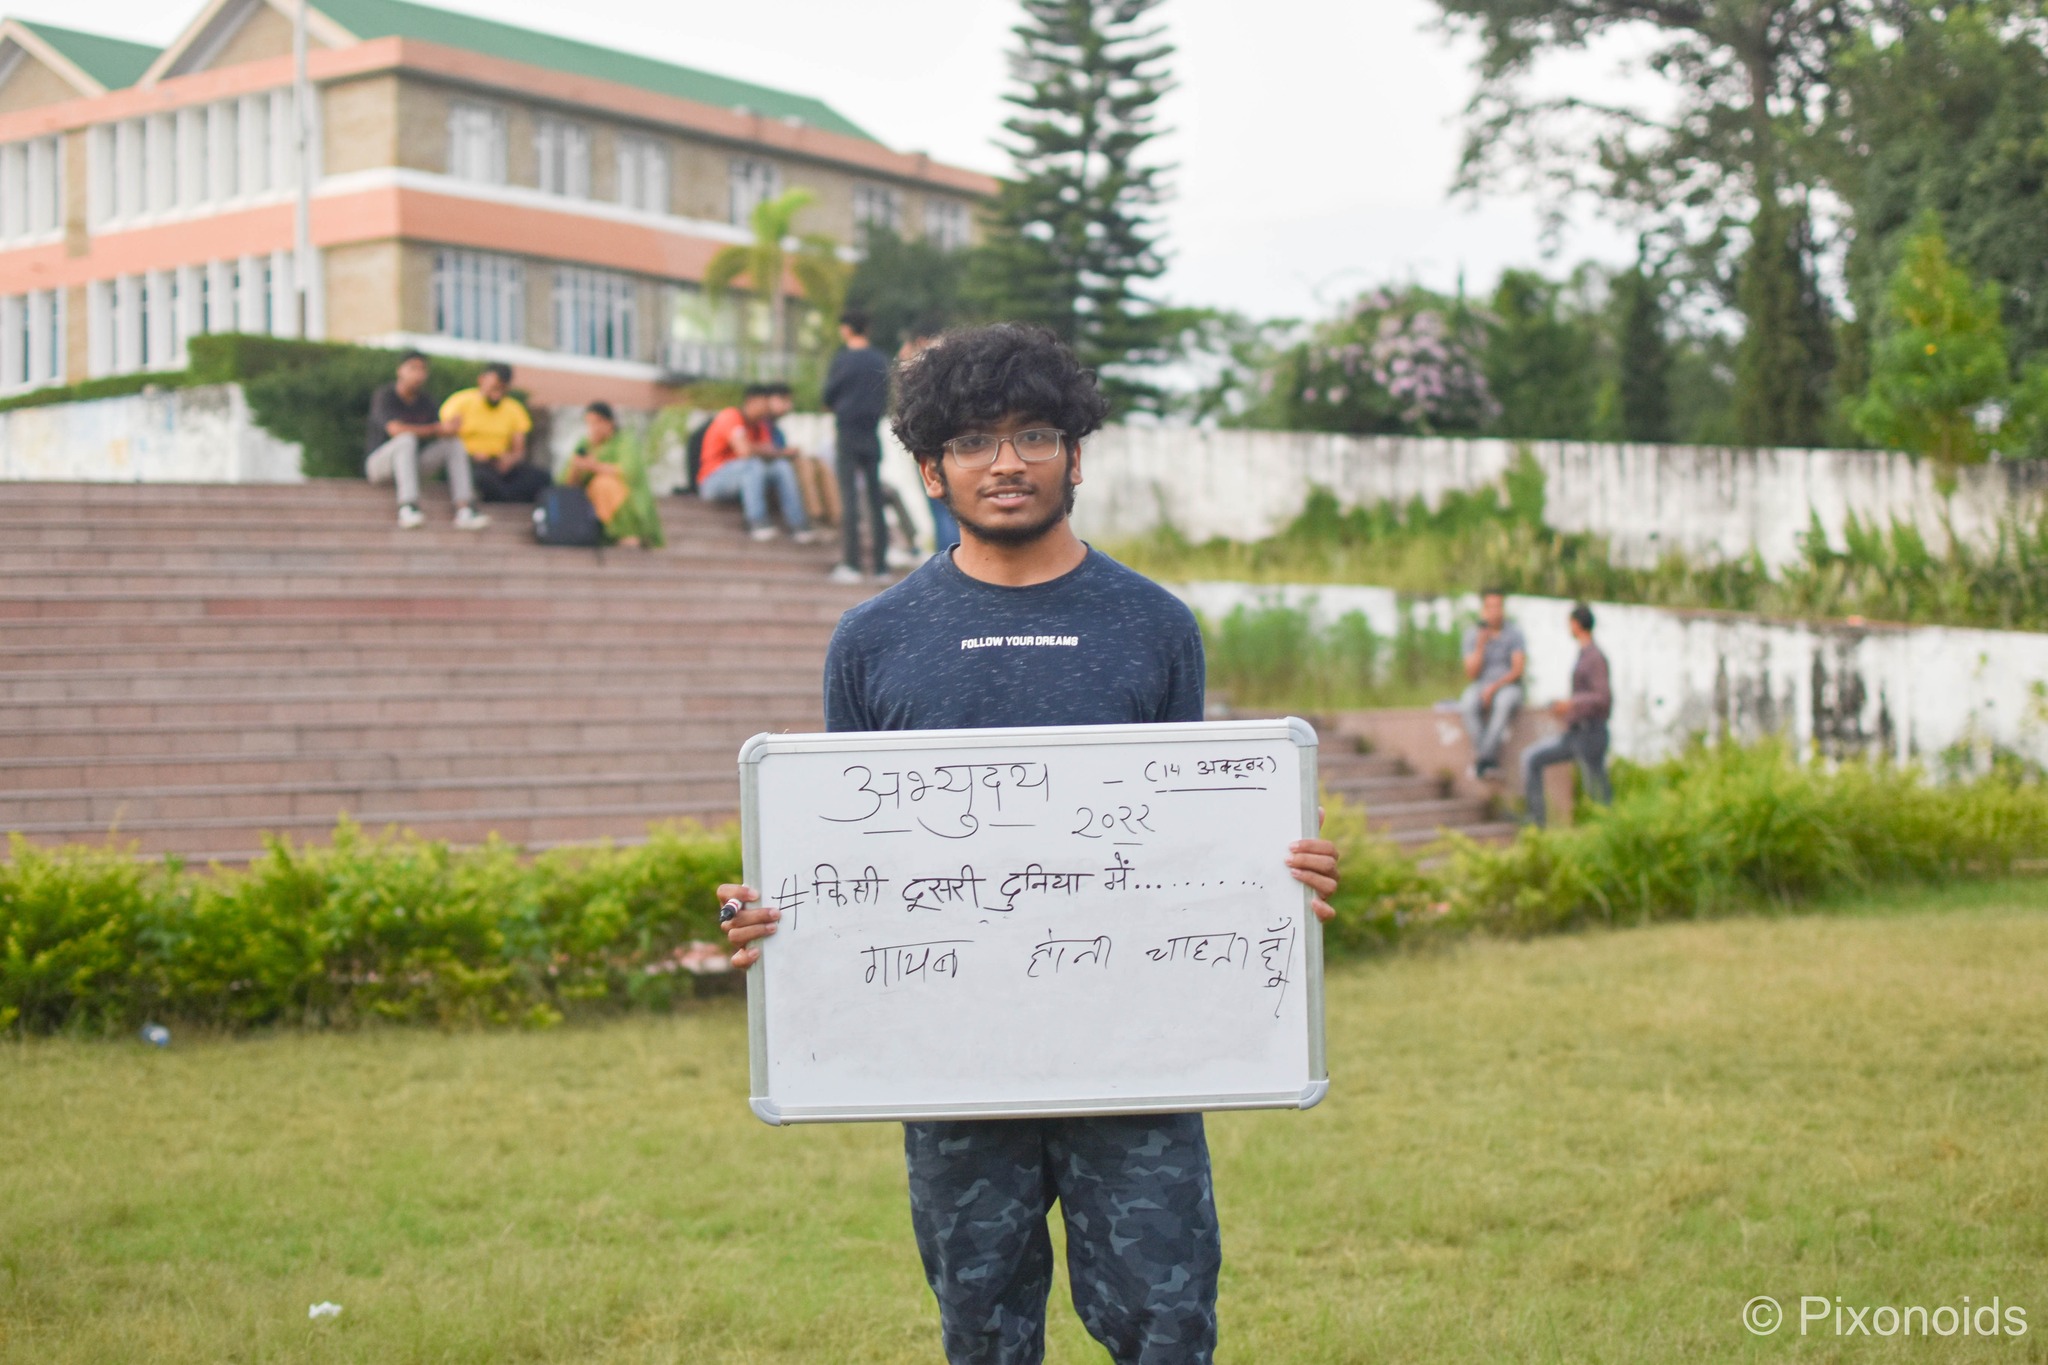 FOLLOW YOUR DREAMS
अभ्युदय - (14 अक्टूबर)
२०२२
#किसी दूसरी दुनिया में..........
गायब होना चाहता हूँ|
© Pixonoids